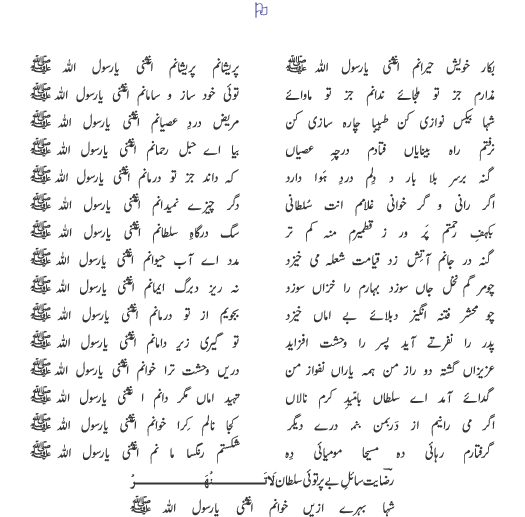 بکار خویش حیرانم اغثنی یارسول اللہ ﷺ پریشانم پریشانم اغثنی یارسول اللہ ﷺ
ندارم جز تو ملجائے ندانم جز تو ماوائے توئی خود ساز و سامانم اغثنی یارسول اللہ ﷺ
شہا بیکس نوازی کن طبیبا چارہ سازی کن مریض درد عصیانم اغثنی یارسول اللہ ﷺ
نرفتم راہ بینایاں فتادم درچہ عصیاں بیا اے حبل رحمانم اغثنی یارسول اللہ ﷺ
گنہ برسر بلا بار د دلم درد ہوا دارد کہ داند جز تو درمانم اغثنی یارسول اللہ ﷺ
اگر رانی و گر خوانی غلامم انت سلطانی دگر چیزے نمیدانم اغثنی یارسول اللہ ﷺ
بکہف رحمتم پر ور ز قطمیرم منہ کم تر سگ درگاہ سلطانم اغثنی یارسول اللہ ﷺ
گنہ در جانم آتش زد قیامت شعلہ می خیزد مدد اے آب حیوانم اغثنی یارسول اللہ ﷺ
چومر گم نخل جاں سوزد بہارم را خزاں سوزد نہ ریزد برگ ایمانم اغثنی یارسول اللہ ﷺ
چو محشر فتنہ انگیزد بلائے بے اماں خیزد بجویم از تو درمانم اغثنی یارسول اللہ ﷺ
پدر را نفرتے آید پسر را وحشت افزاید تو گیری زیر دامانم اغثنی یارسول اللہ ﷺ
عزیزاں گشتہ دو راز من ہمہ یاراں نفواز من دریں وحشت ترا خوانم اغثنی یارسول اللہ ﷺ
گدائے آمد اے سلطاں بامید کرم نالاں تہید اماں مگر دانم ا غثنی یارسول اللہ ﷺ
اگر می رانیم از دربمن درے دیگر کجا نالم کرا خوانم اغثنی یارسول اللہ ﷺ
گرفتارم رہائی دہ مسیحا مومیائی دہ شکستم رنگسا ما نم اغثنی یارسول اللہ ﷺ
رضایت سائل بے پرتوئی سلطان لاتنھر
شہا بہرے ازیں خوانم اغثنی یارسول اللہ ﷺ